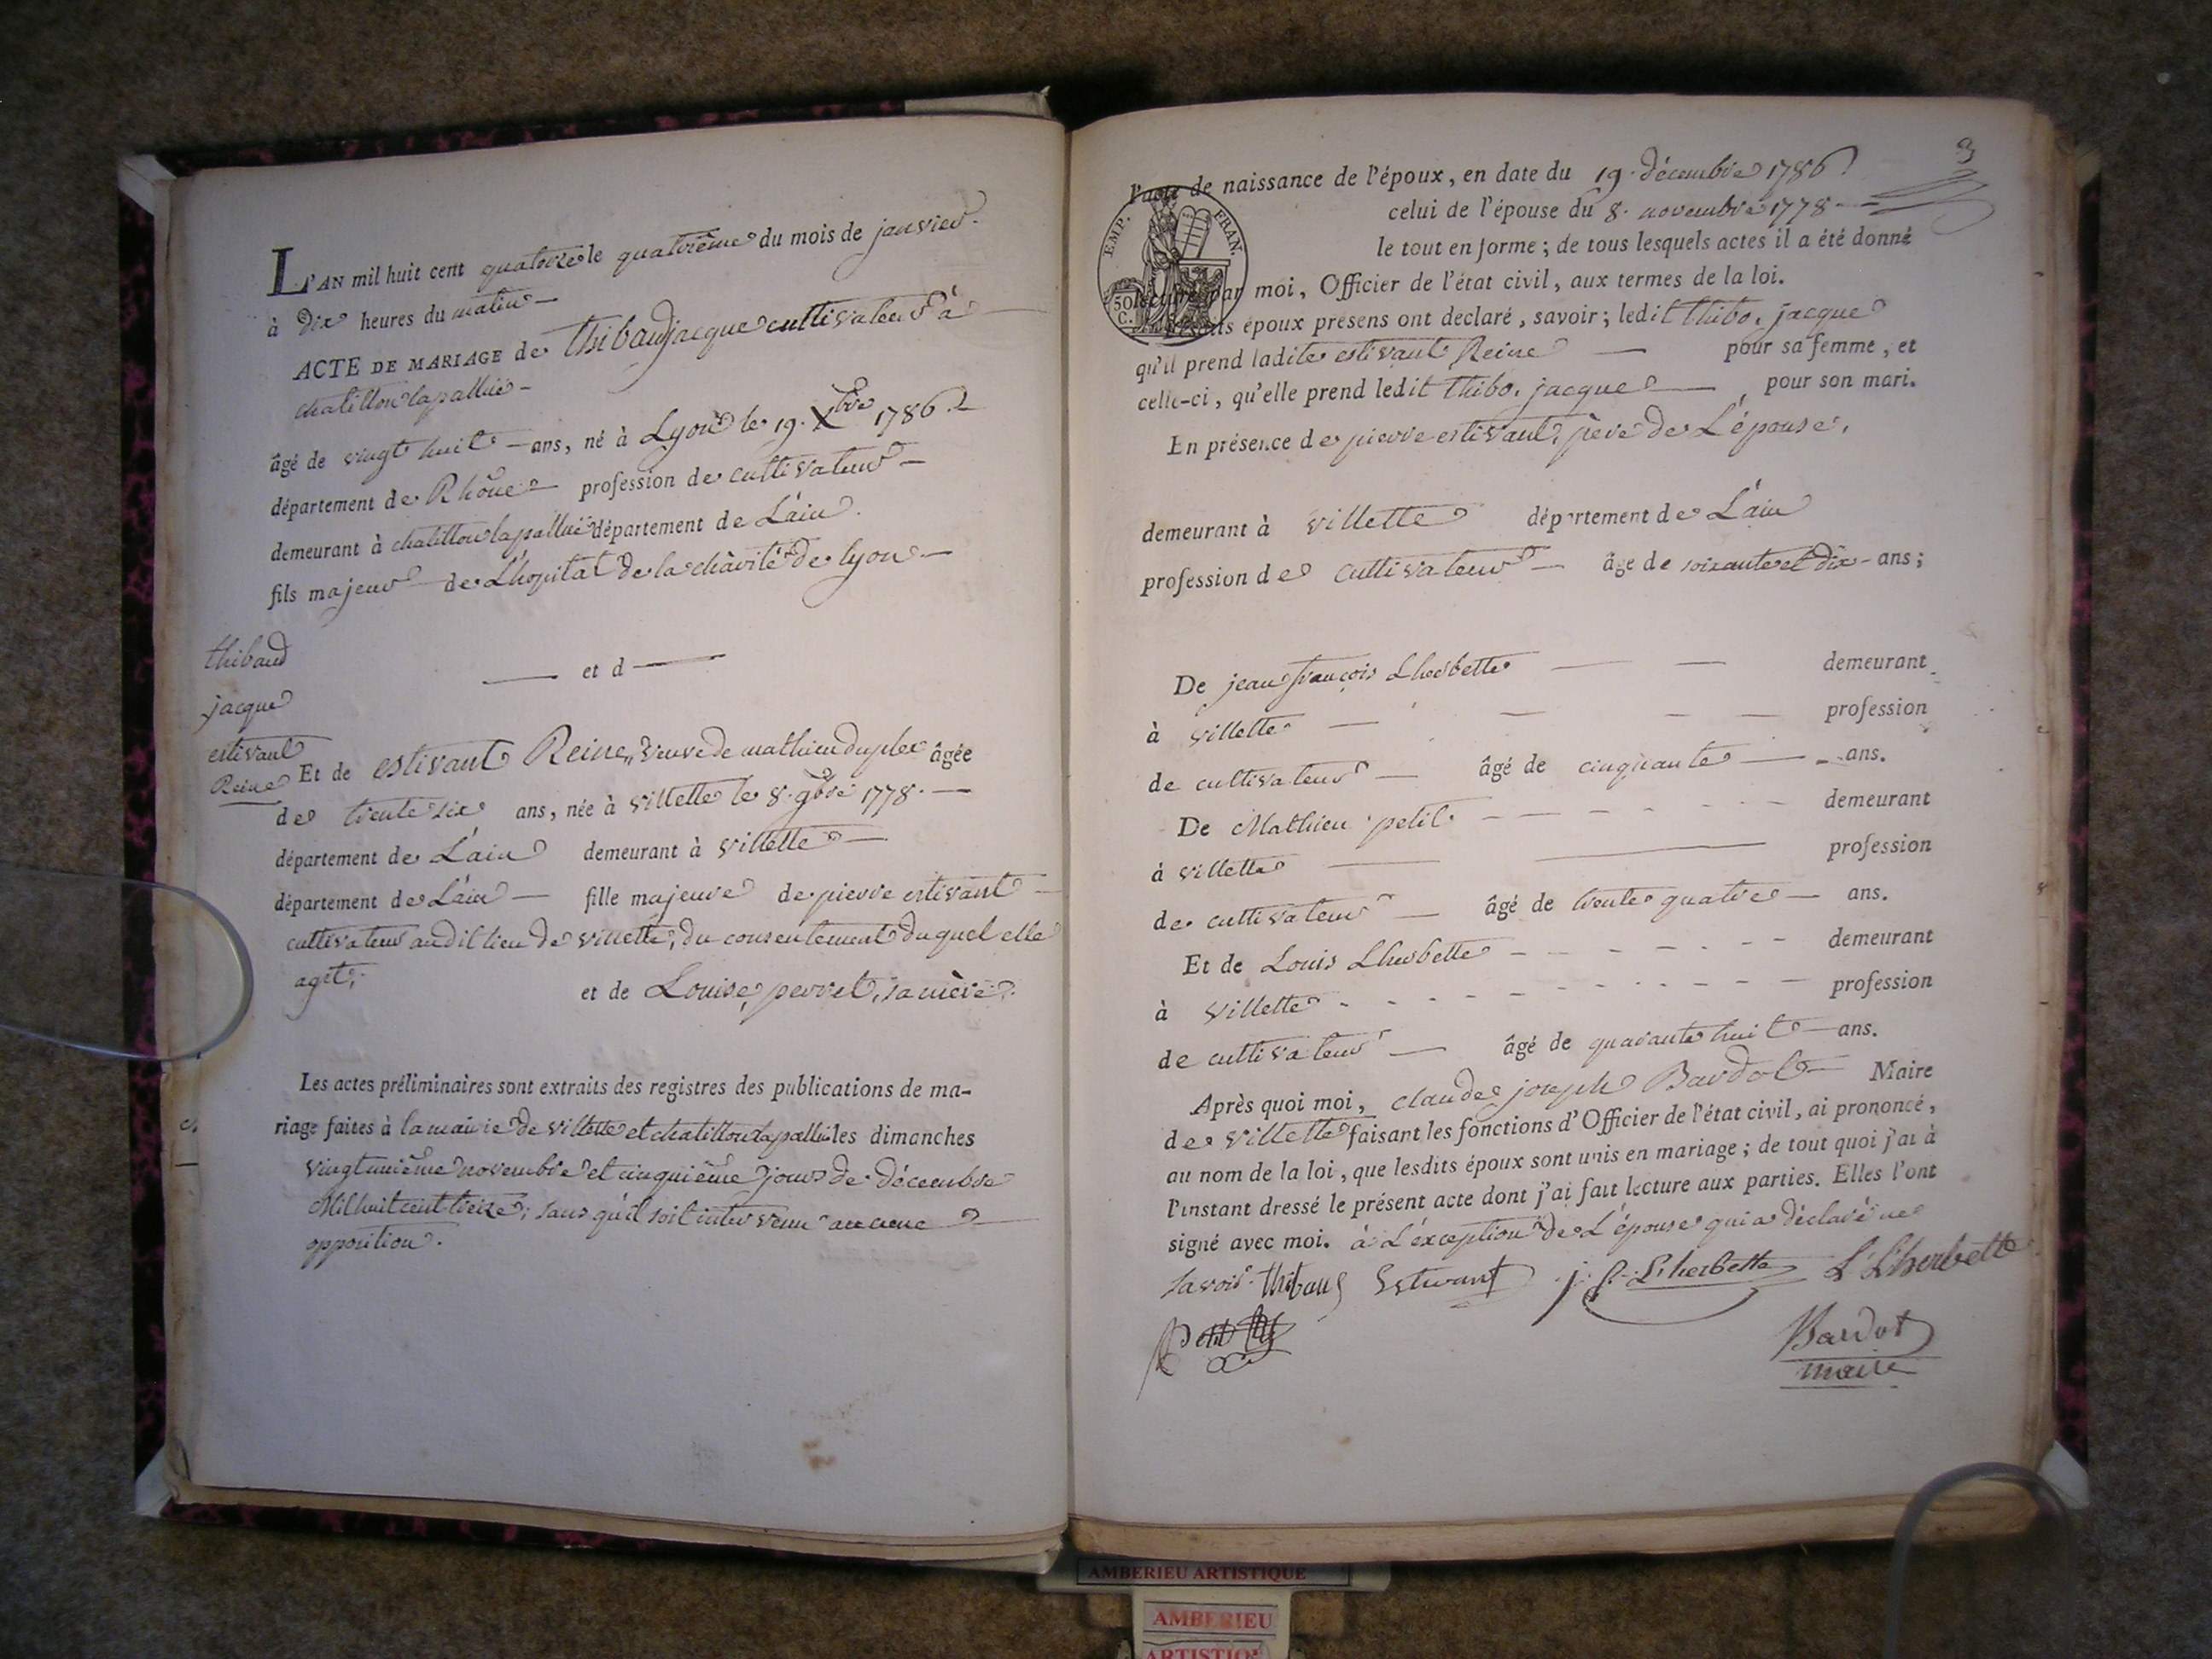 L'AN mil huit cent quatorze le quatrième du mois de janvier.
à Dix heures du matin —
ACTE DE MARIAGE de thibaud jacque cultivateur à
chatillon lapallüe —
âgé de vingt huit — ans, né à Lyon le 19. Xbre 1786.
département de Rhône — profession de cultivateur —
demeurant à chatillon lapallüe département de L'ain.
fils majeur — de L'hopital de la charité de lyon —
— et d —
thibaud
jacque
estivant
Reine
Et de estivant Reine, veuve de mathieu duplex âgée
de trente six ans, née à villette le 8. 9bre 1778. —
département de L'ain demeurant à villette —
département de L'ain — fille majeure de pierre estivant —
cultivateur audit lieu de villette, du consentement duquel elle
agit;
et de Louise perret, sa mère.
Les actes préliminaires sont extraits des registres des publications de ma-
riage faites à la mairie de villette et chatillon lapallüe les dimanches
vingtunième novembre et cinquième jour de décembre
Mil huit cent treize; sans qu'il soit intervenu aucune
opposition.
3
l'acte de naissance de l'époux, en date du 19. décembre 1786.
celui de l'épouse du 8. novembre 1778 —
EMP. FRAN.
50
C.
le tout en forme; de tous lesquels actes il a été donné
lecture par moi, Officier de l'état civil, aux termes de la loi.
Lesdits époux présens ont déclaré, savoir; ledit thibo. jacque
qu'il prend ladite estivant Reine — pour sa femme, et
celle-ci, qu'elle prend ledit thibo. jacque — pour son mari.
En présence de pierre estivant, père de L'épouse,
demeurant à villette département de L'ain
profession de cultivateur — âge de soixante et dix - ans;
De jean françois Lherbette — — demeurant
à villette — — — — profession
de cultivateur — âgé de cinquante — ans.
De Mathieu petit - - - - - - demeurant
à villette — — profession
de cultivateur — âgé de trente quatre — ans.
Et de Louis Lherbette - - - - - - demeurant
à villette - - - - - - - - - - profession
de cultivateur — âgé de quarante huit — ans.
Après quoi moi, claude joseph Bardot — Maire
de villette faisant les fonctions d'Officier de l'état civil, ai prononcé,
au nom de la loi, que lesdits époux sont unis en mariage; de tout quoi j'ai à
l'instant dressé le présent acte dont j'ai fait lecture aux parties. Elles l'ont
signé avec moi. à L'exception de L'épouse qui a déclaré ne
savoir. thibaud Estivant j. f. Lherbette L Lherbette
Petit
Bardot
maire
AMBERIEU ARTISTIQUE
AMBERIEU
ARTISTIQUE